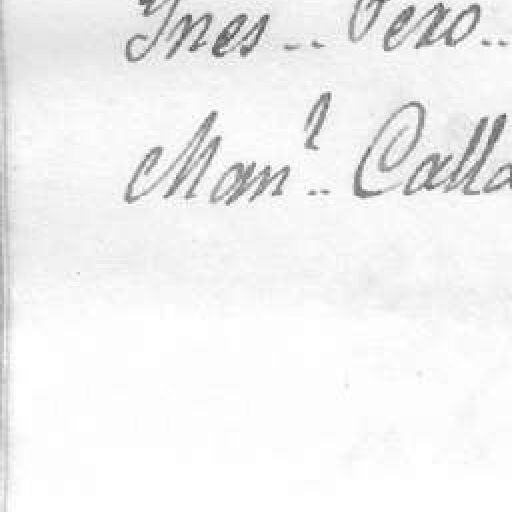 Ynes -- Pero --
Man.l -- Calla